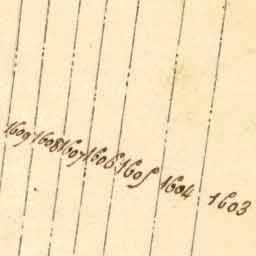 1609 1608 1607 1606 1605 1604 1603